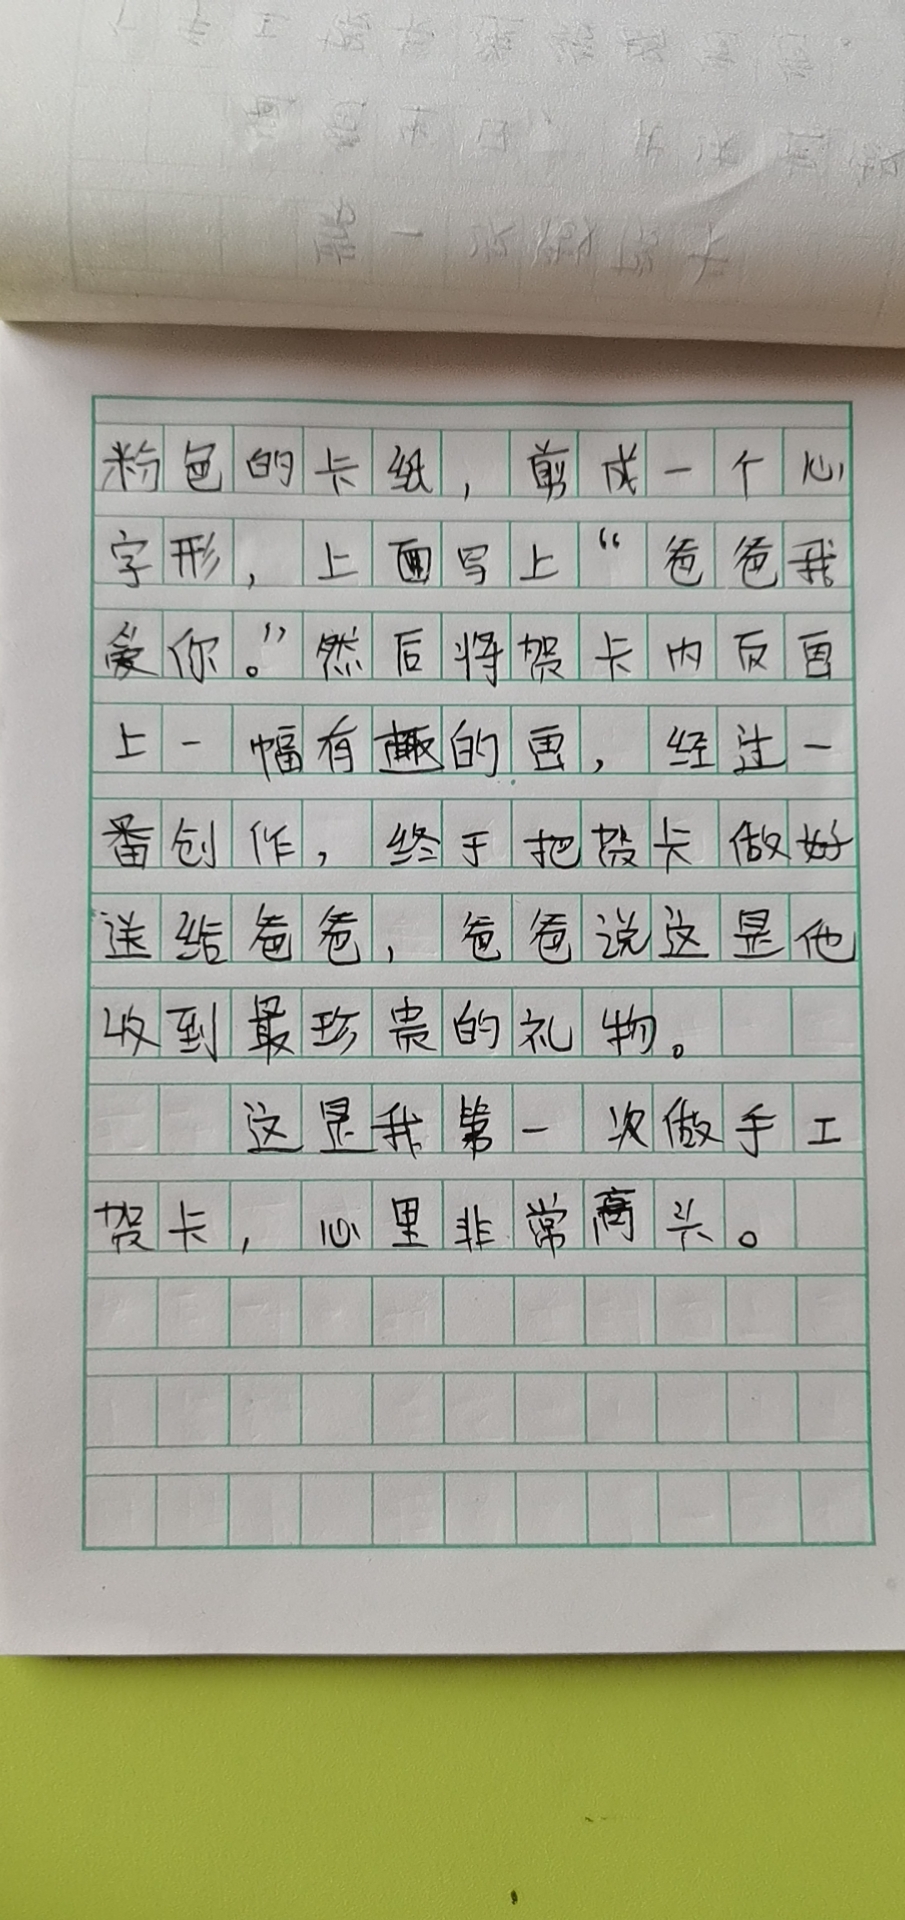 粉色的卡纸，剪成一个心
字形，上面写上“爸爸我
爱你。”然后将贺卡内反画
上一幅有趣的画，经过一
番创作，终于把贺卡做好
送给爸爸，爸爸说这是他
收到最珍贵的礼物。
这是我第一次做手工
贺卡，心里非常高兴。